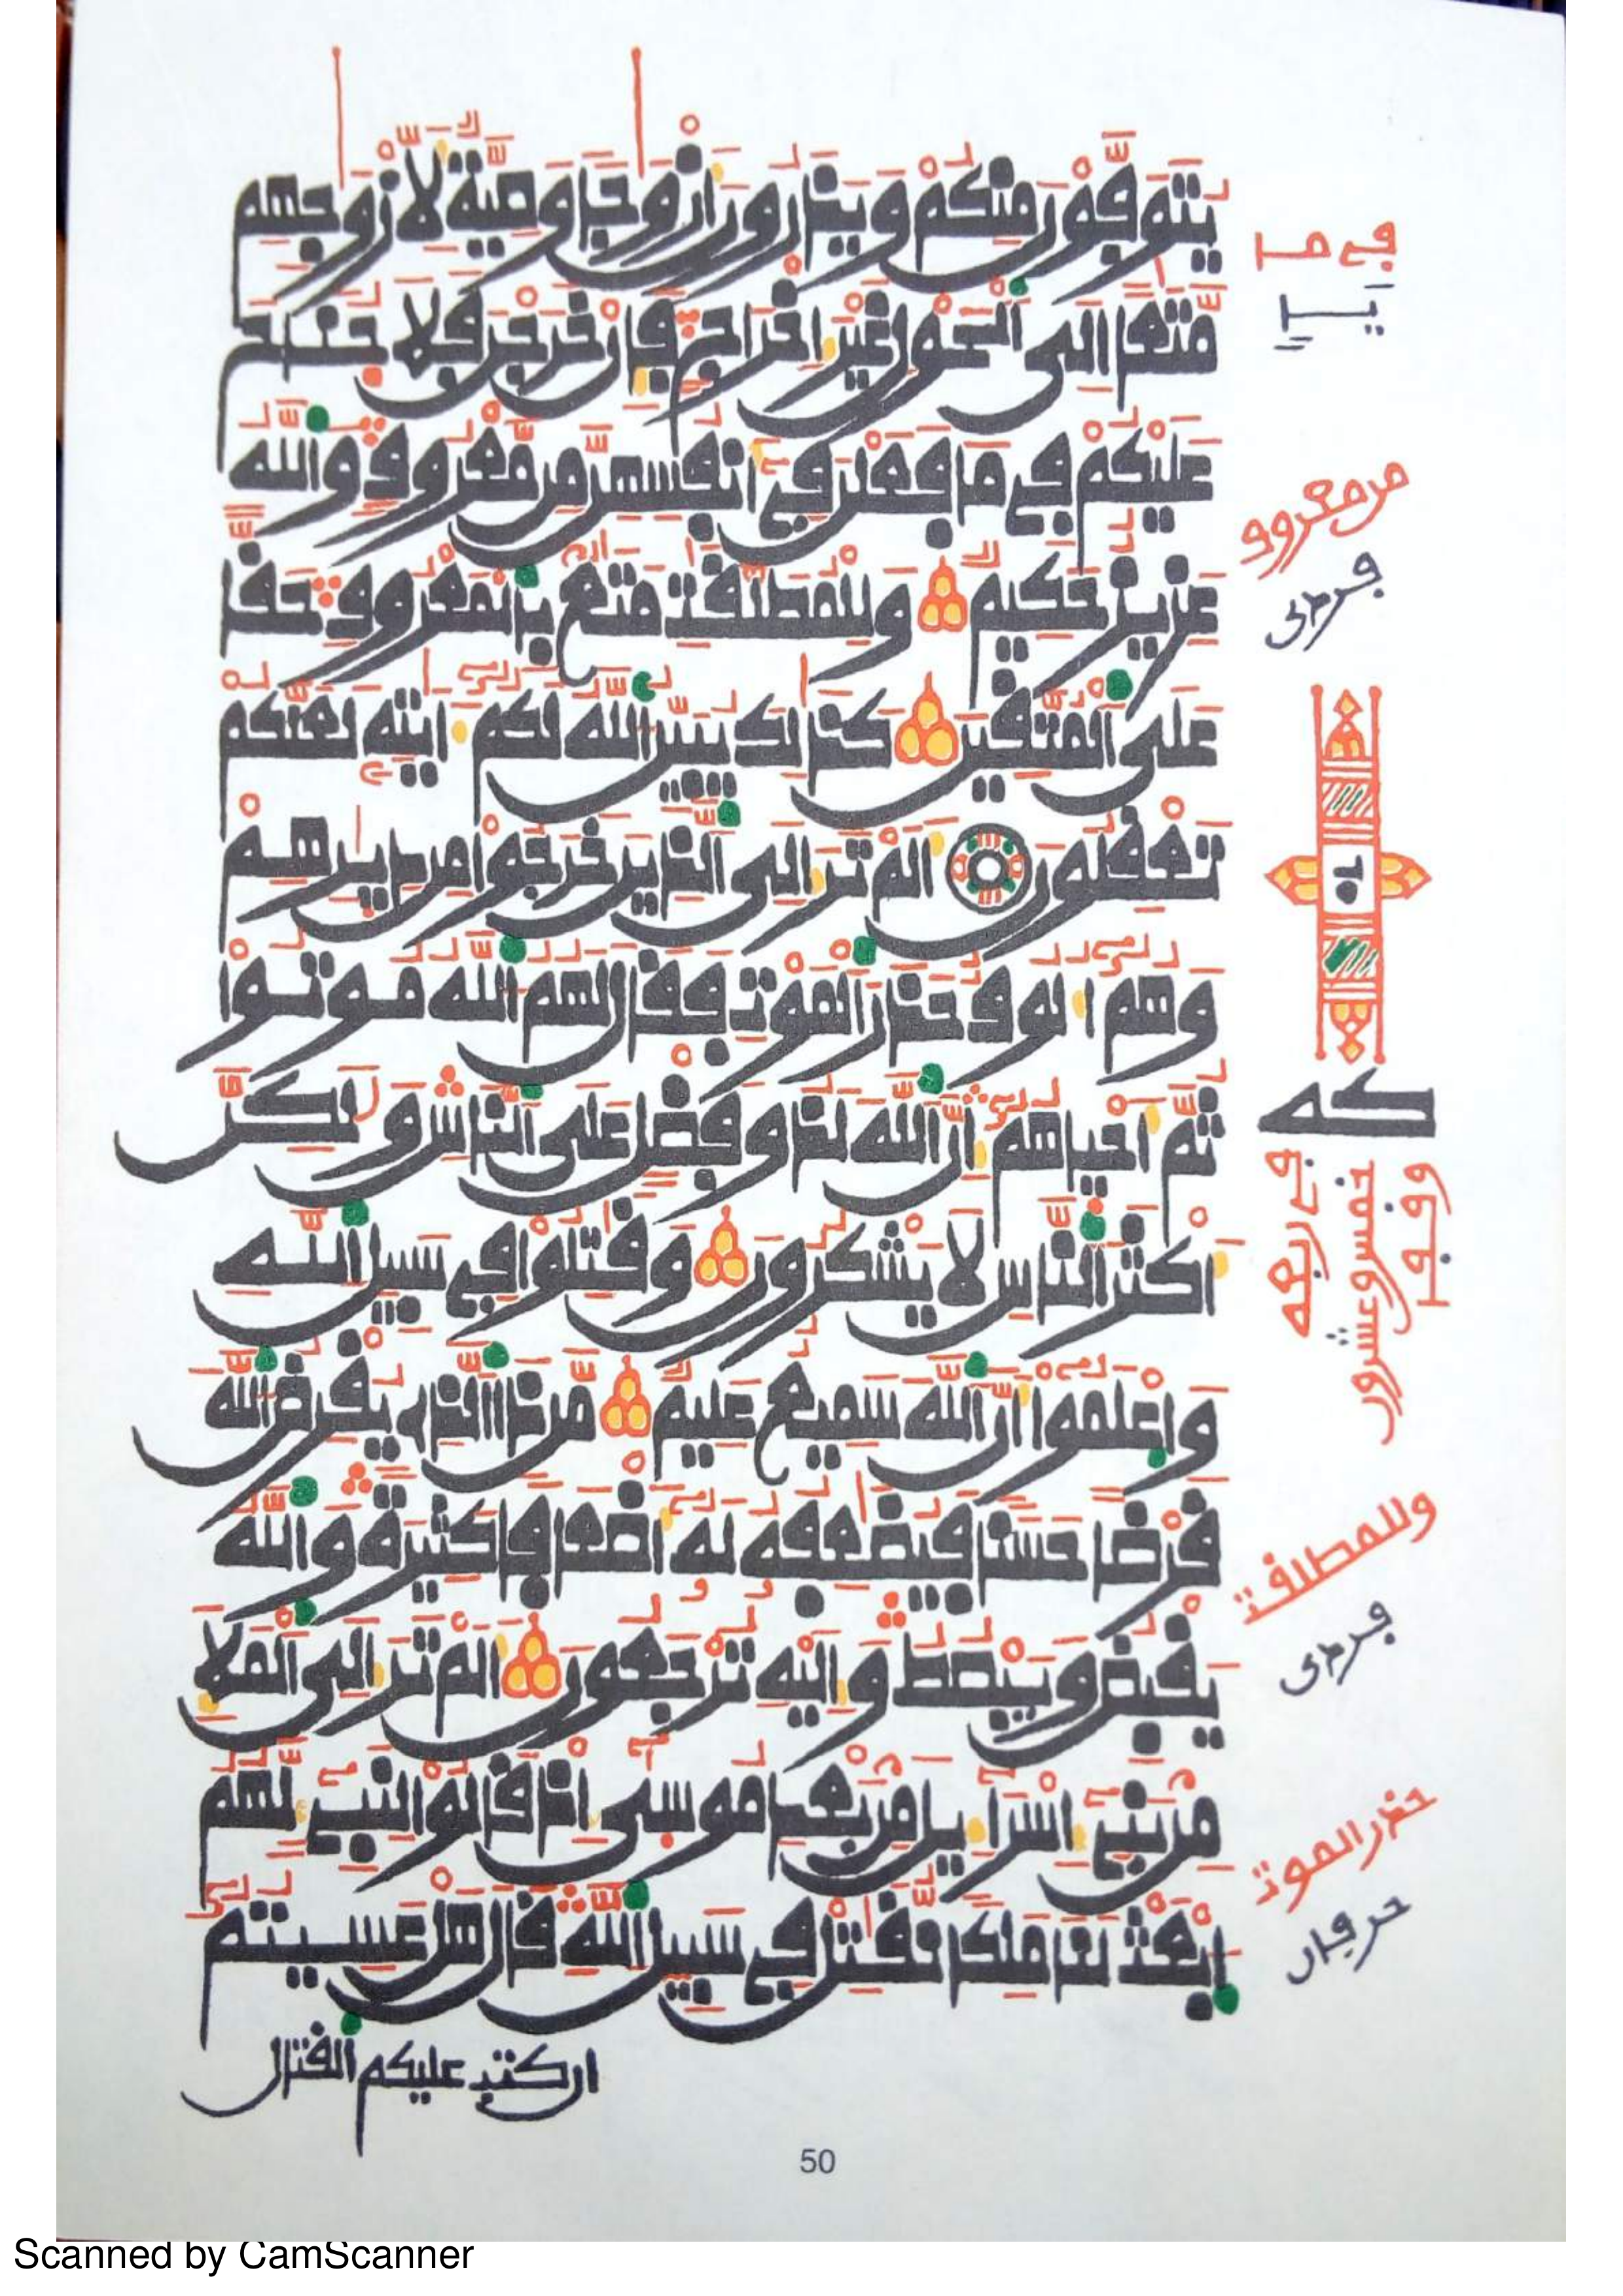 يتوفون منكم ويذرون أزوجا وصية لأزوجهم
متعا إلى ٱلحول غير إخراج فإن خرجن فلا جناح
عليكم في ما فعلن في أنفسهن من معروف وٱلله
عزيز حكيم وللمطلقت متع بٱلمعروف حقا
على ٱلمتقين كذلك يبين ٱلله لكم ءايته لعلكم
تعقلون ألم تر إلى ٱلذين خرجوا من ديرهم
وهم ألوف حذر ٱلموت فقال لهم ٱلله موتوا
ثم أحياهم إن ٱلله لذو فضل على ٱلناس ولكن
أكثر ٱلناس لا يشكرون وقتلوا في سبيل ٱلله
وٱعلموا أن ٱلله سميع عليم من ذا ٱلذي يقرض ٱلله
قرضا حسنا فيضعفه له أضعافا كثيرة وٱلله
يقبض ويبصط وإليه ترجعون ألم تر إلى ٱلملإ
من بني إسراءيل من بعد موسى إذ قالوا لنبي لهم
ٱبعث لنا ملكا نقتل في سبيل ٱلله قال هل عسيتم
إن كتب عليكم ٱلقتال
في ما
من معروف
كه
في ربعه
خمس وعشرون
وقفا
وللمطلقت
حذر الموت
50
Scanned by CamScanner